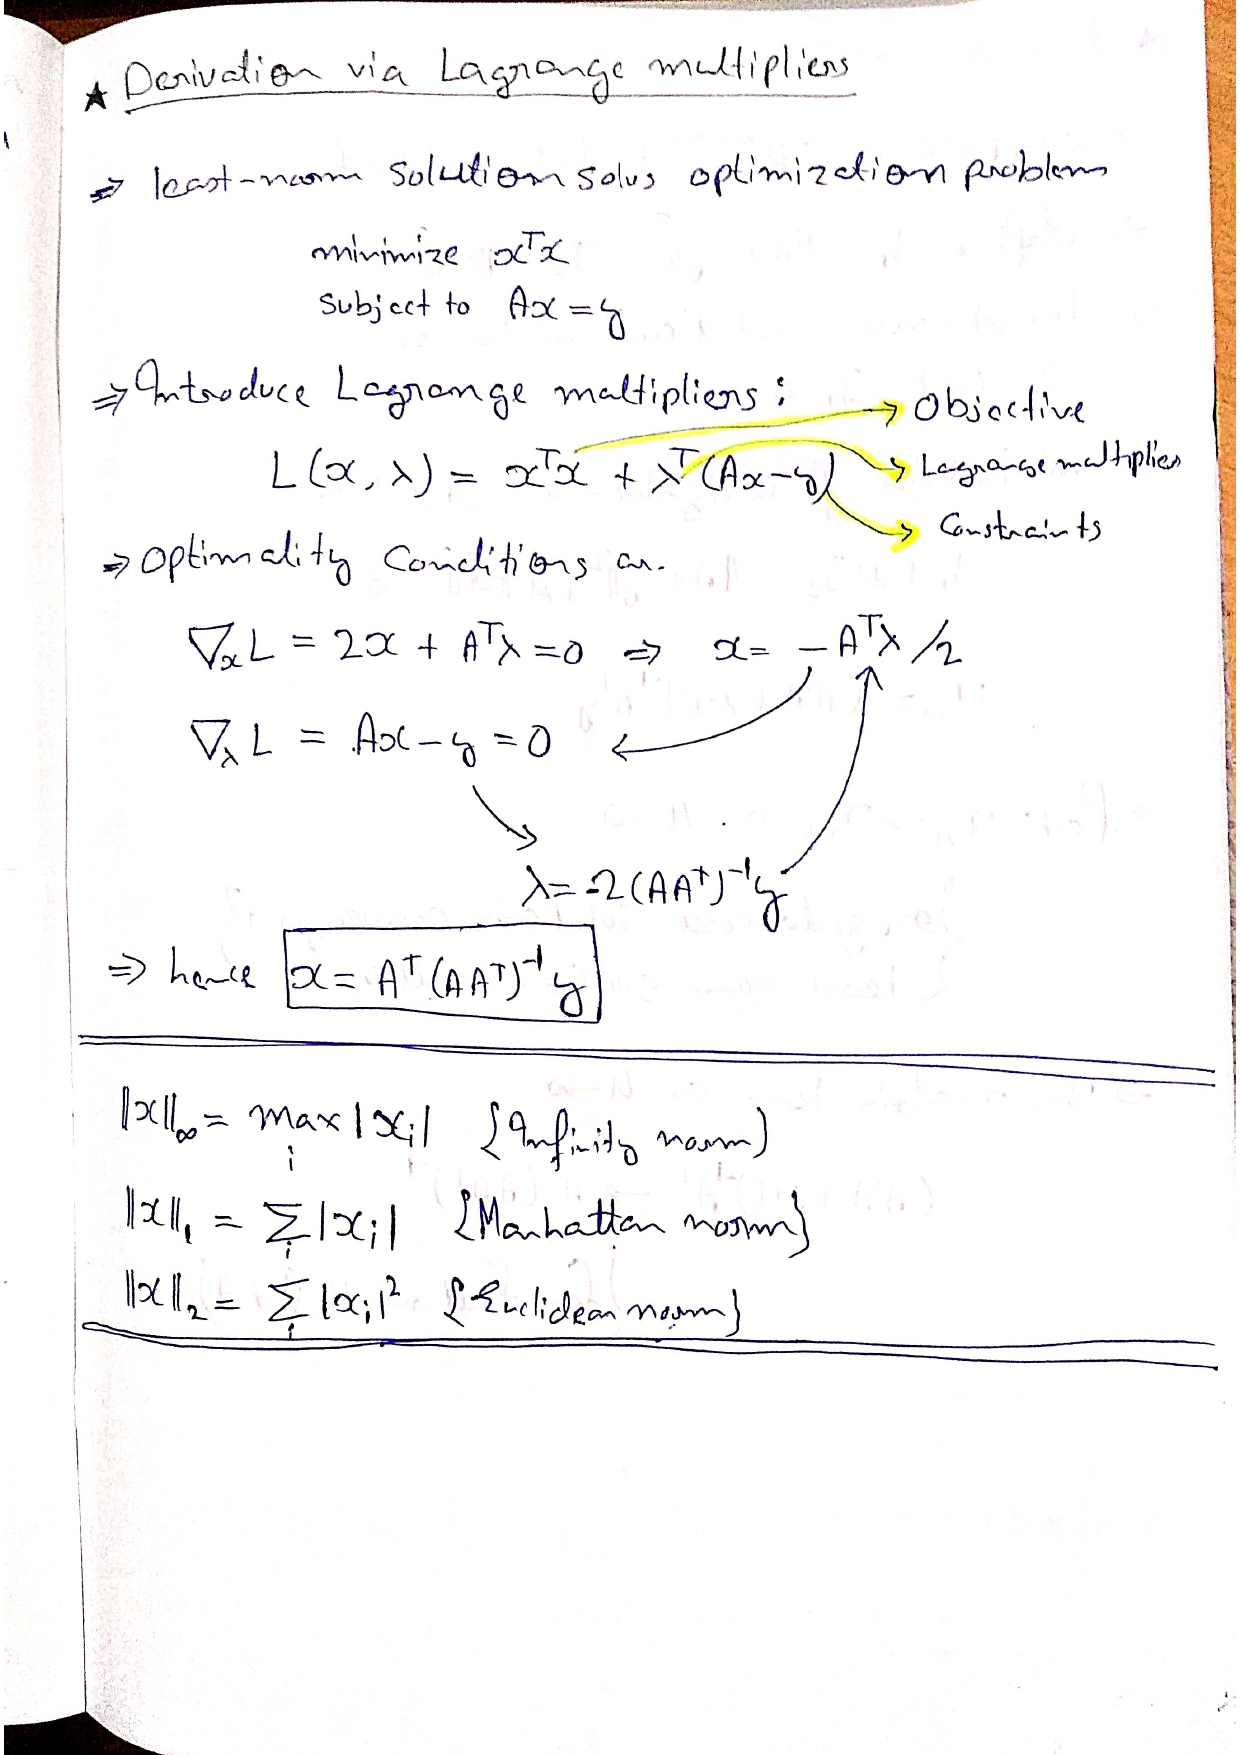 ★ Derivation via Lagrange multipliers
⇒ least-norm solution solves optimization problem
minimize xᵀx
subject to Ax = y
⇒ Introduce Lagrange multipliers :
→ Objective
L(x, λ) = xᵀx + λᵀ(Ax-y)
→ Lagrange multiplier
→ Constraints
⇒ Optimality Conditions are
∇ₓL = 2x + Aᵀλ = 0 ⇒ x = -Aᵀλ/2
∇_λ L = Ax - y = 0
λ = -2(AAᵀ)⁻¹y
⇒ hence x = Aᵀ(AAᵀ)⁻¹y
||x||_∞ = max_i |xᵢ| {Infinity norm}
||x||₁ = Σ_i |xᵢ| {Manhattan norm}
||x||₂ = Σ_i |xᵢ|² {Euclidean norm}